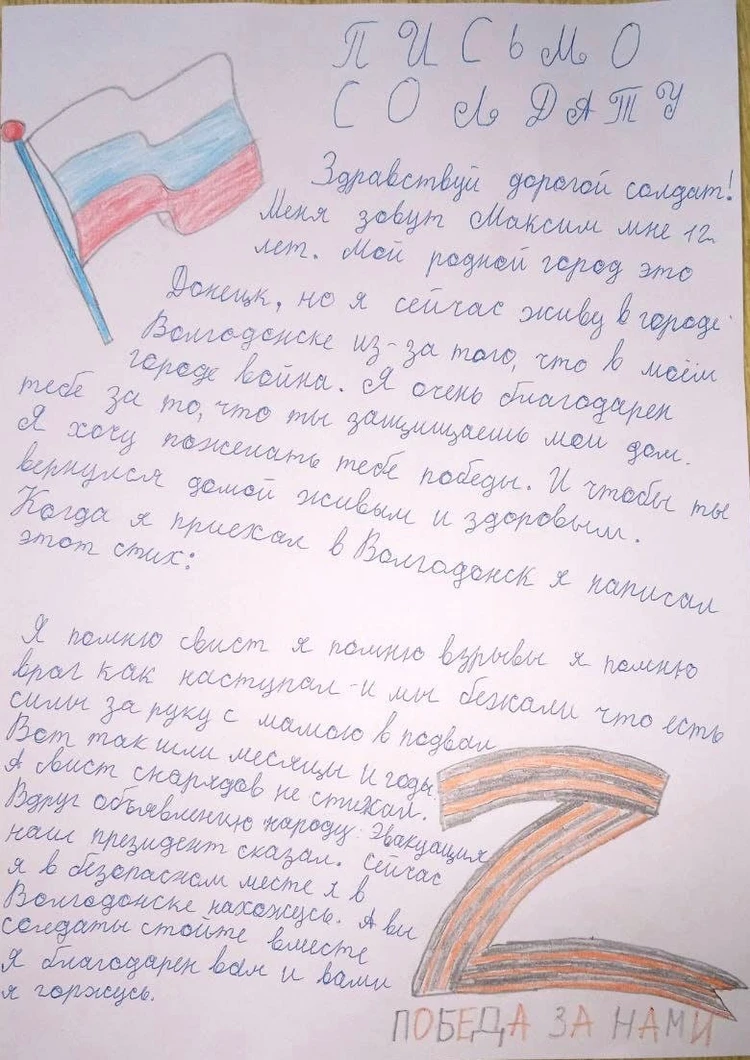 ПИСЬМО
СОЛДАТУ
Здравствуй дорогой солдат!
Меня зовут Максим мне 12
лет. Мой родной город это
Донецк, но я сейчас живу в городе
Волгодонске из-за того, что в моём
городе война. Я очень благодарен
тебе за то, что ты защищаешь мой дом.
Я хочу пожелать тебе победы. И чтобы ты
вернулся домой живым и здоровым.
Когда я приехал в Волгодонск я написал
этот стих:
Я помню свист я помню взрывы я помню
враг как наступал - и мы бежали что есть
силы за руку с мамою в подвал
Вот так шли месяцы и годы.
А свист снарядов не стихал.
Вдруг объявлению народу: Эвакуация
наш президент сказал. Сейчас
я в безопасном месте я в
Волгодонске нахожусь. А вы
солдаты стойте вместе
Я благодарен вам и вами
я горжусь.
ПОБЕДА ЗА НАМИ